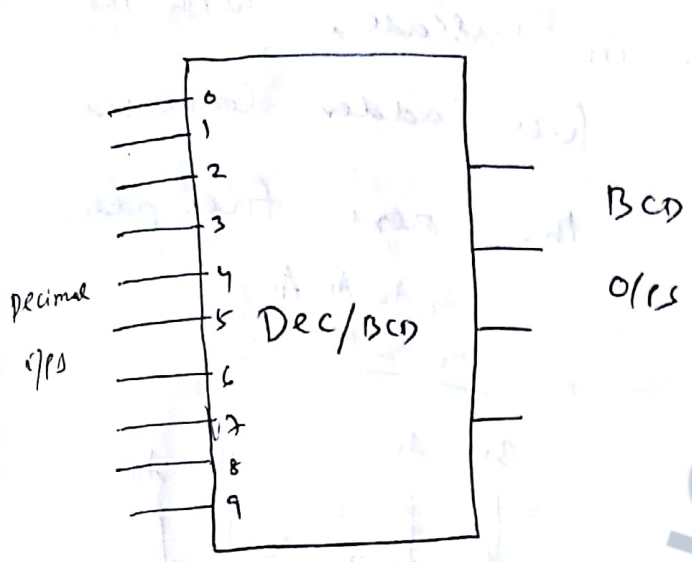 0
1
2
3
4
5
6
7
8
9
Decimal
i/ps
Dec/BCD
BCD
O/PS